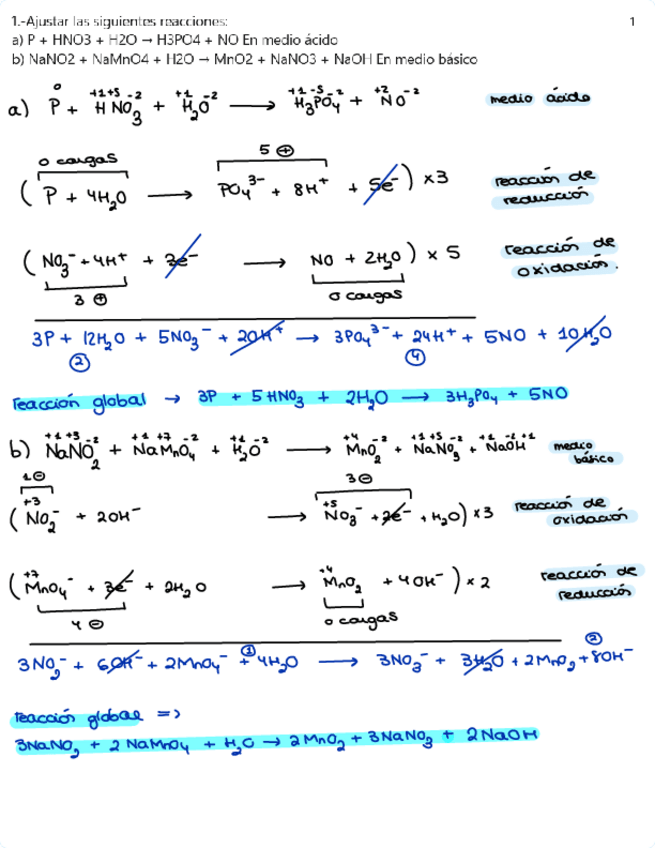 1.-Ajustar las siguientes reacciones: 1
a) P + HNO3 + H2O → H3PO4 + NO En medio ácido
b) NaNO2 + NaMnO4 + H2O → MnO2 + NaNO3 + NaOH En medio básico
0 +1+5-2 +1 -2 +1 -5 -2 +2 -2
a) P + HNO₃ + H₂O ⟶ H₃PO₄ + NO medio ácido
0 cargas 5 ⊕
( P + 4H₂O ⟶ PO₄³⁻ + 8H⁺ + 5e⁻ ) x3 reacción de reducción
( NO₃⁻ + 4H⁺ + 3e⁻ ⟶ NO + 2H₂O ) x 5 reacción de oxidación.
3 ⊕ 0 cargas
3P + 12H₂O + 5NO₃⁻ + 20H⁺ → 3PO₄³⁻ + 24H⁺ + 5NO + 10H₂O
② ④
reacción global → 3P + 5HNO₃ + 2H₂O ⟶ 3H₃PO₄ + 5NO
+1 +3 -2 +1 +7 -2 +1 -2 +4 -2 +1 +5 -2 +1 -2 +1
b) NaNO₂ + NaMnO₄ + H₂O ⟶ MnO₂ + NaNO₃ + NaOH medio básico
1⊖ 3⊖
+3 +5
( NO₂⁻ + 2OH⁻ ⟶ NO₃⁻ + 2e⁻ + H₂O) x3 reacción de oxidación
+7 +4
( MnO₄⁻ + 3e⁻ + 2H₂O ⟶ MnO₂ + 4OH⁻ ) x 2 reacción de reducción
4 ⊖ 0 cargas
① ②
3NO₂⁻ + 6OH⁻ + 2MnO₄⁻ + 4H₂O ⟶ 3NO₃⁻ + 3H₂O + 2MnO₂ + 8OH⁻
reacción global =>
3NaNO₂ + 2NaMnO₄ + H₂O → 2MnO₂ + 3NaNO₃ + 2NaOH